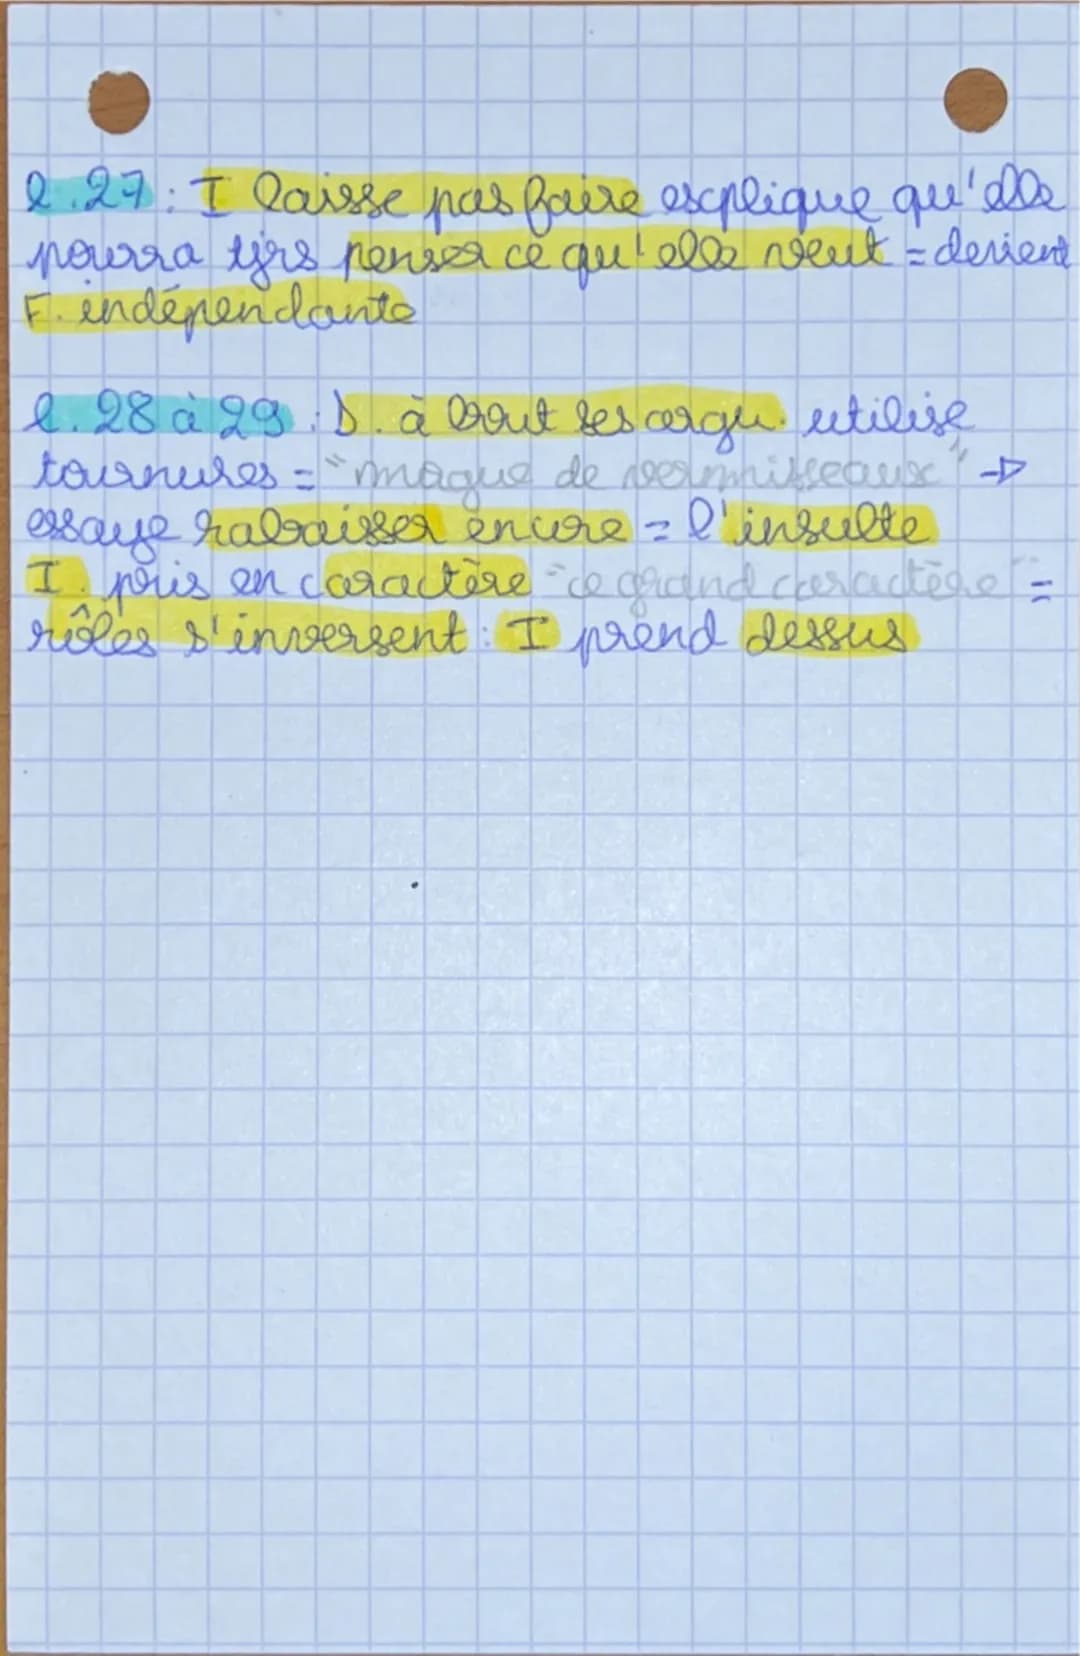 l.27 : I laisse pas faire explique qu'elle
pourra tjrs penser ce qu'elle veut = devient
F. indépendante
l. 28 à 29 : D. à bout ses argu. utilise
tournures = "maque de vermisseaux" →
essaye rabaisser encore = l'insulte
I. pris en caractère "ce grand caractère" =
rôles s'inversent : I prend dessus